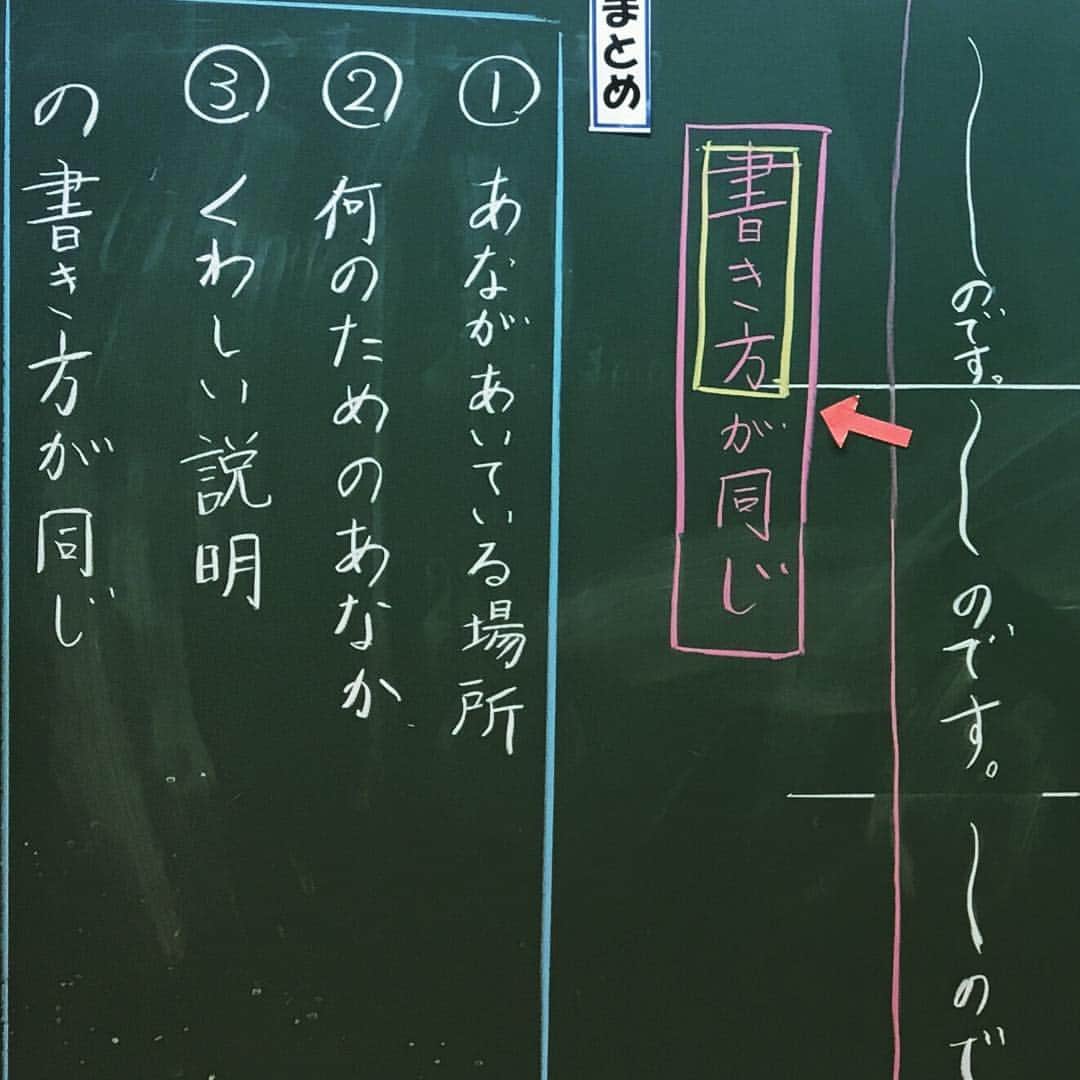 〜のです。
〜のです。
〜ので
書き方が同じ
まとめ
①あながあいている場所
②何のためのあなか
③くわしい説明
の書き方が同じ